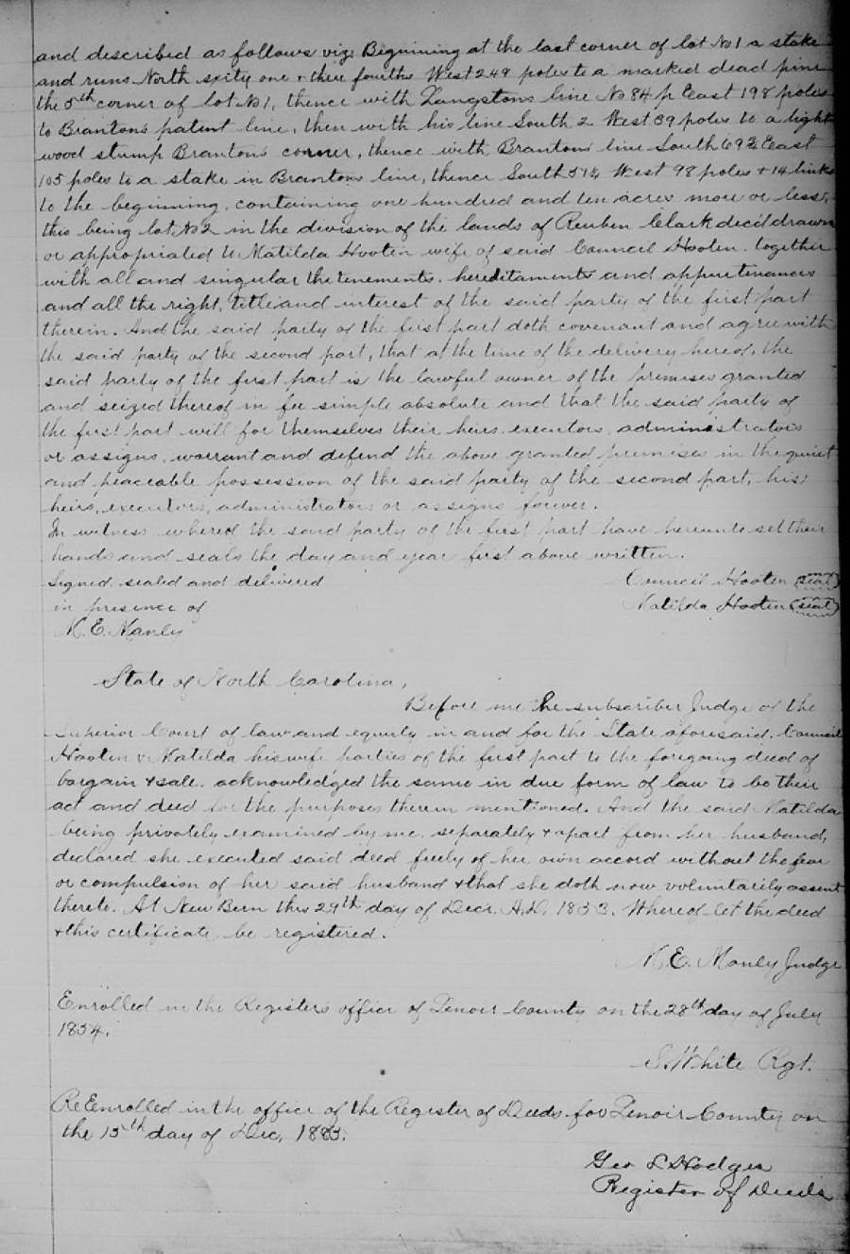 and described as follows viz Beginning at the last corner of lot No 1 a stake
and runs North sixty one & three fourths West 249 poles to a marked dead pine
the 5th corner of lot No 1, thence with Langstons line No 84 p East 198 poles
to Brantons patent line, then with his line South 2 West 39 poles to a light
wood stump Brantons corner, thence with Brantons line South 69½ East
105 poles to a stake in Brantons line, thence South 51½ West 98 poles & 14 links
to the beginning, containing one hundred and ten acres more or less,
this being lot No 2 in the division of the lands of Reuben Clark decd drawn
or appropriated to Matilda Hooten wife of said Council Hooten. together
with all and singular the tenements, hereditaments and appurtenances
and all the right, title and interest of the said party of the first part
therein. And the said party of the first part doth covenant and agree with
the said party of the second part, that at the time of the delivery hereof, the
said party of the first part is the lawful owner of the premises granted
and seized thereof in fee simple absolute and that the said party of
the first part will for themselves their heirs, executors, administrators
or assigns, warrant and defend the above granted premises in the quiet
and peaceable possession of the said party of the second part, his
heirs, executors, administrators or assigns forever.
In witness whereof the said party of the first part have hereunto set their
hands and seals the day and year first above written.
Signed sealed and delivered Council Hooten (seal)
in presence of Matilda Hooten (seal)
M. E. Manly
State of North Carolina,
Before me the subscriber Judge of the
Superior Court of law and equity in and for the State aforesaid, Council
Hooten & Matilda his wife parties of the first part to the foregoing deed of
bargain & sale, acknowledged the same in due form of law to be their
act and deed for the purposes therein mentioned. And the said Matilda
being privately examined by me, separately & apart from her husband,
declared she executed said deed freely of her own accord without the fear
or compulsion of her said husband & that she doth now voluntarily assent
thereto. At New Bern this 29th day of Decr A.D. 1853. Whereof let the deed
& this certificate be registered.
M. E. Manly Judge
Enrolled in the Registers office of Lenoir County on the 28th day of July
1854.
S. White Rgt.
ReEnrolled in the office of the Register of Deeds for Lenoir County on
the 15th day of Dec, 1883.
Geo L Hodges
Register of Deeds